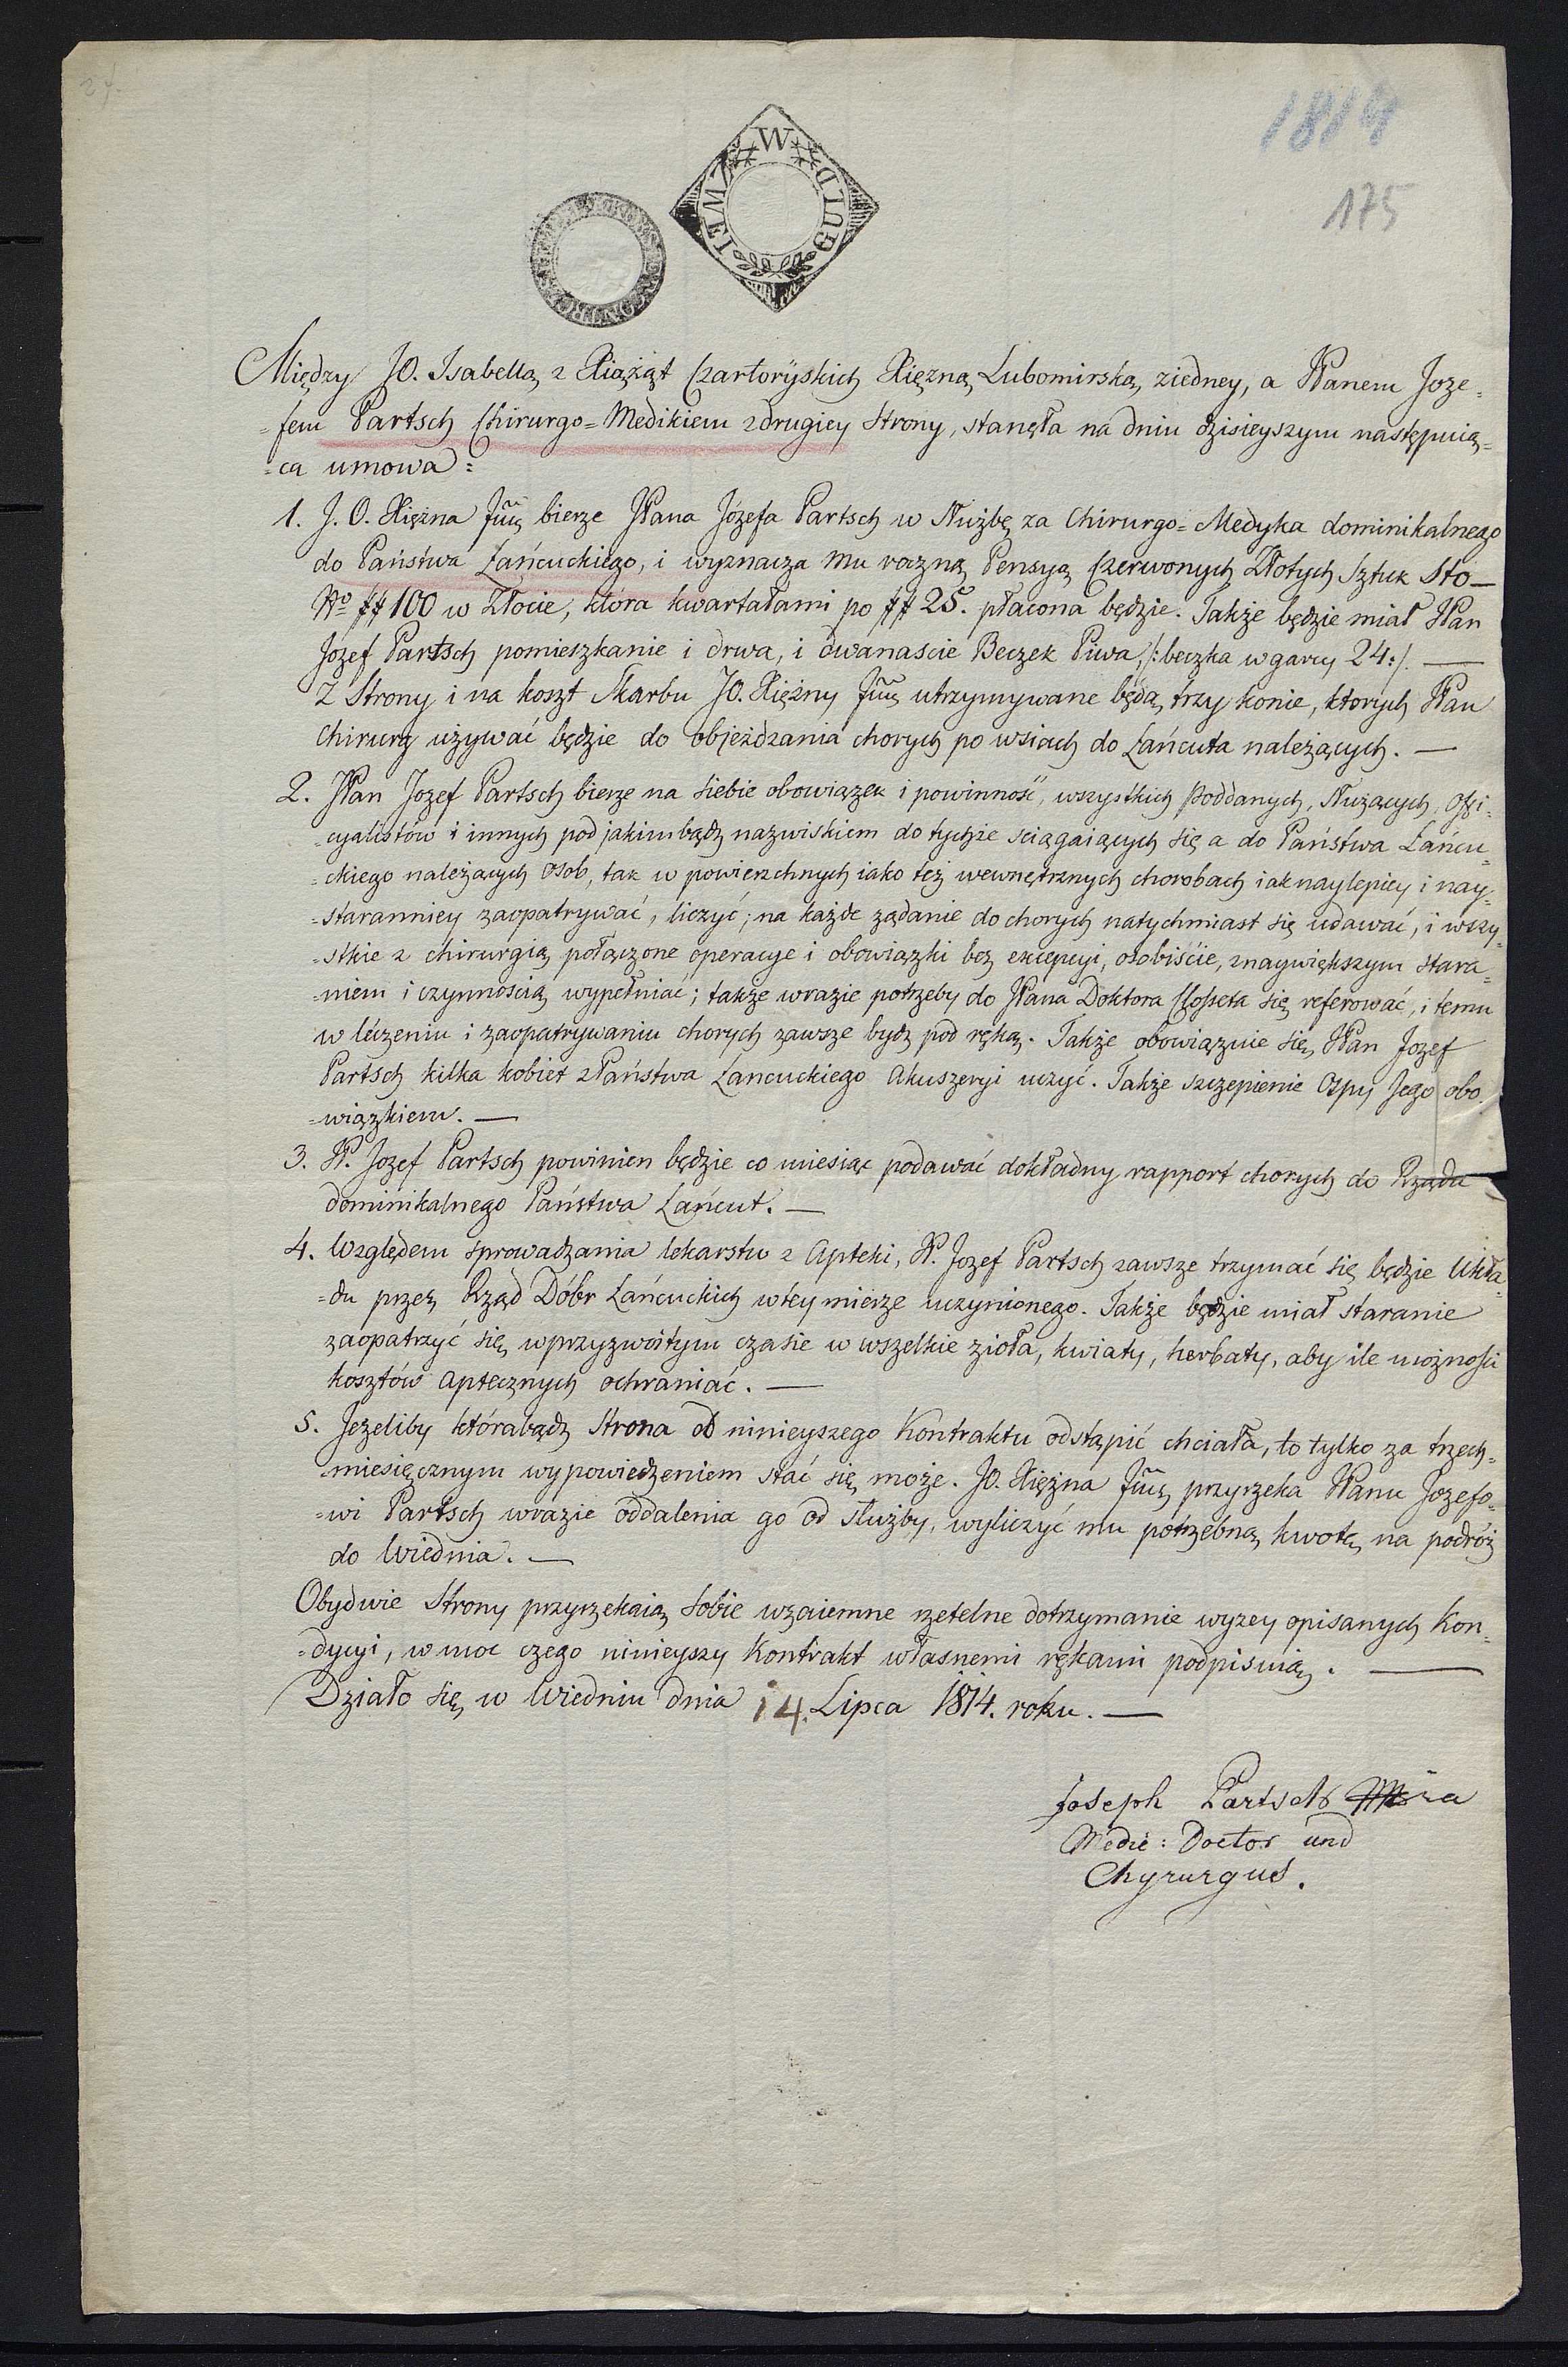 1814
175
W
ZWEI GULD
Między JO. Isabellą z Xiążąt Czartoryskich Xięzną Lubomirską, ziedney, a JPanem Joze-
=fem Partsch Chirurgo=Medikiem zdrugiey Strony, stanęła na dniu dzisieyszym następuią-
=ca umowa:
1. J. O. Xiężna Jmć bierze JPana Józefa Partsch w Służbę za Chirurgo=Medyka dominikalnego
do Państwa Łańcuckiego, i wyznacza mu roczną Pensyą Czerwonych Złotych Sztuk Sto—
Nro ## 100 w Złocie, która kwartałami po ## 25. płacona będzie. Także będzie miał JPan
Jozef Partsch pomieszkanie i drwa, i dwanascie Beczek Piwa, /: beczka w garcy 24:/. —
Z Strony i na koszt Skarbu JO. Xiężny Jmć utrzymywane będą trzy konie, ktorych JPan
Chirurg używać będzie do objeżdzania chorych po wsiach do Łańcuta należących. —
2. JPan Jozef Partsch bierze na siebie obowiązek i powinność, wszystkich Poddanych, Służących, Offi-
=cyalistów i innych pod jakimbądź nazwiskiem do tychże sciągaiących się a do Państwa Łańcu-
=ckiego należących osob, tak w powierzchnych iako też wewnętrznych chorobach iak naylepiey i nay-
=staranniey zaopatrywać, liczyć; na każde ządanie do chorych natychmiast się udawać, i wszy-
=stkie z chirurgią połączone operacye i obowiązki bez excepcyi, osobiście, znaywiększym stara-
=niem i czynnością wypełniać; także wrazie potrzeby do JPana Doktora Closseta się referować, i temu
w leczeniu i zaopatrywaniu chorych zawsze bydź pod ręką. Także obowiązuie się JPan Jozef
Partsch kilka kobiet z Państwa Lancuckiego Akuszeryi uczyć. Także szczepienie Ospy Jego obo-
=wiązkiem. —
3. JP. Jozef Partsch powinien będzie co miesiąc podawać dokładny rapport chorych do Rządu
dominikalnego Państwa Łańcut. —
4. Względem sprowadzania lekarstw z Apteki, JP. Jozef Partsch zawsze trzymać się będzie Ukła-
=du przez Rząd Dóbr Łańcuckich wtey mierze uczynionego. Także będzie miał staranie
zaopatrzyć się wprzyzwoitym czasie w wszelkie zioła, kwiaty, herbaty, aby ile możności
kosztów aptecznych ochraniać. —
5. Jezeliby którabądź Strona od ninieyszego Kontraktu odstąpić chciała, to tylko za trzech-
miesięcznym wypowiedzeniem stać się może. JO. Xiężna Jmć przyrzeka JPanu Jozefo-
=wi Partsch wrazie oddalenia go od służby, wyliczyć mu potrzebną kwotę na podróż
do Wiednia. —
Obydwie Strony przyrzekaią sobie wzaiemne rzetelne dotrzymanie wyzey opisanych Kon-
=dycyi, w moc czego ninieyszy Kontrakt własnemi rękami podpisuią. —
Działo się w Wiedniu dnia 14. Lipca 1814. roku. —
Joseph Partsch
Medic: Doctor und
Chyrurgus.